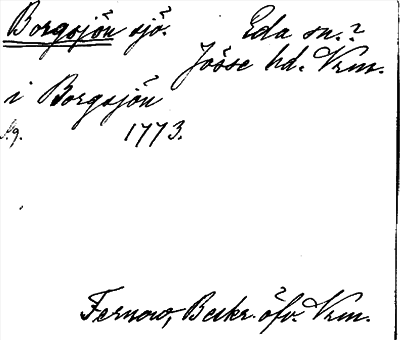 Borgsjön sjö. Eda sn.?
Jösse hd. Vrm.
i Borgsjön
1773.
Fernow, Beskr. öfv. Vrm.